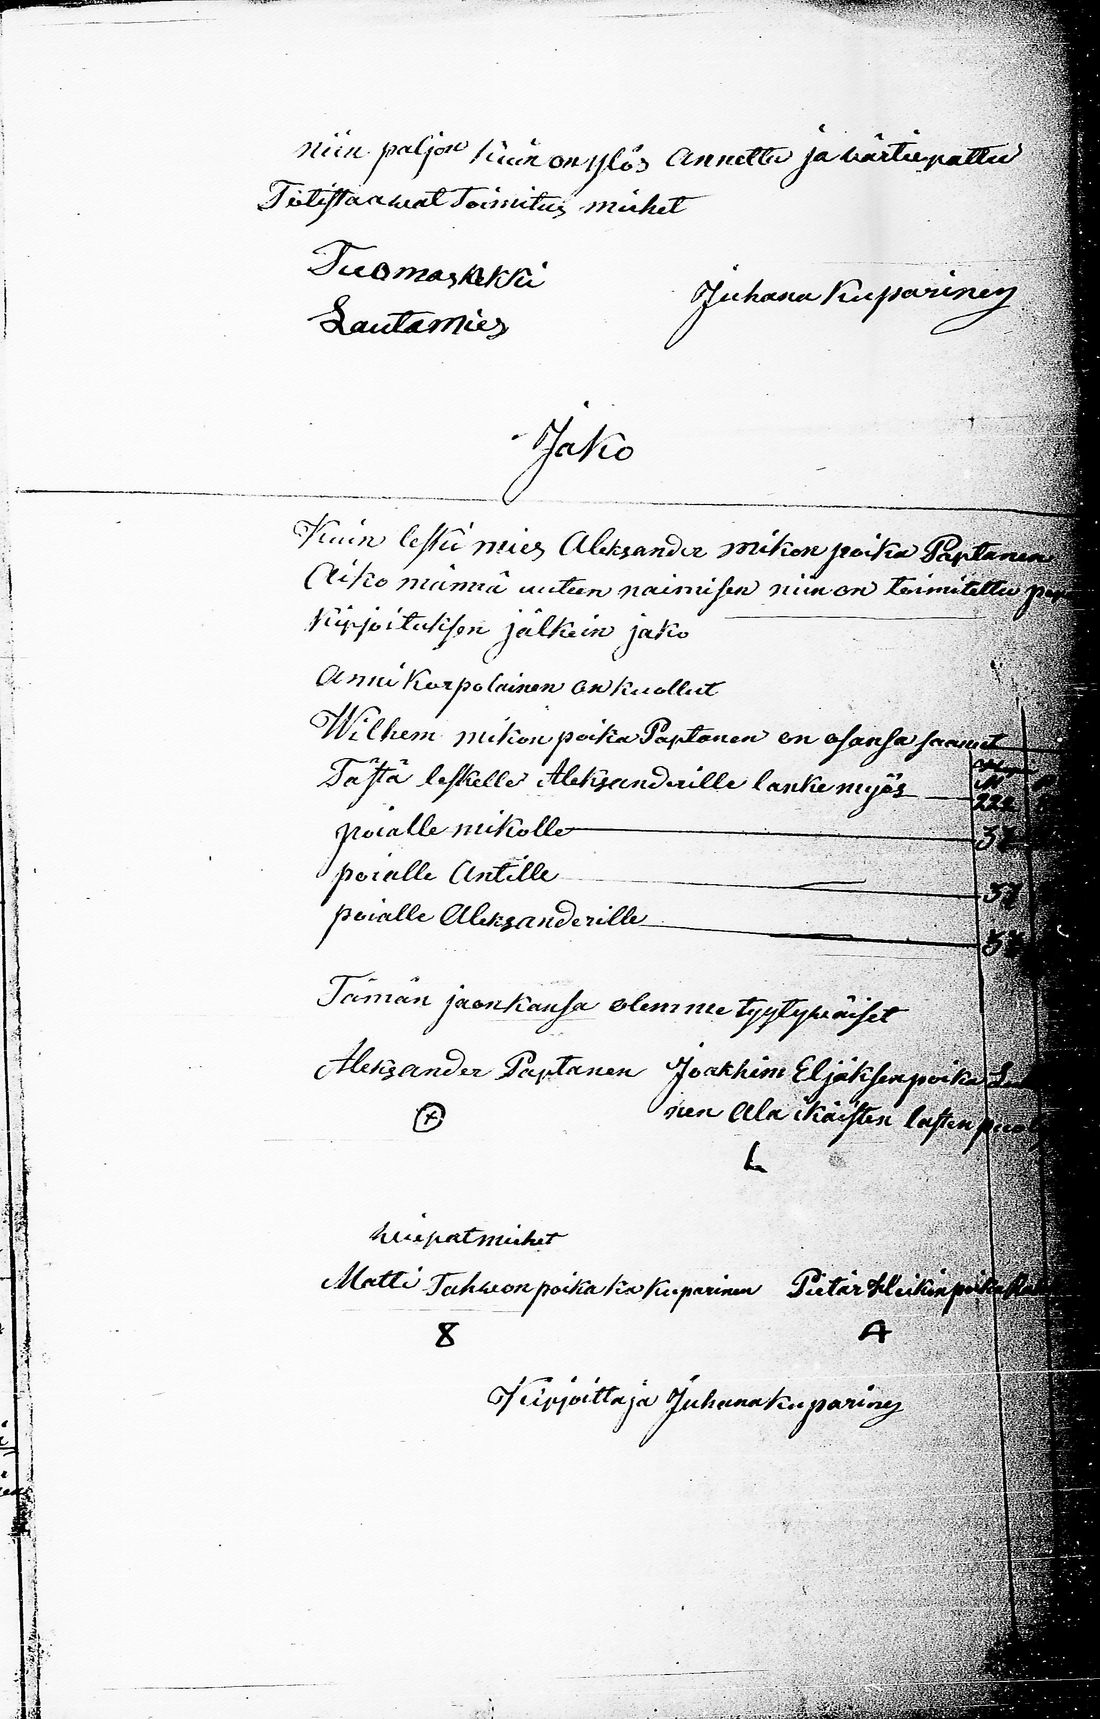 niin paljon kuin on ylös Annettu ja värtieerattu
Totistaawat Toimitus miehet
Tuomas Kekki
Juhana Kuparinen
Lautamies
Jako
Kuin leski mies Aleksander mikon poika Paptanen
Aiko männä uuteen naimisen niin on toimitettu
kirjoituksen jälkein jako
Anni Korpolainen on kuollut
Wilhem mikon poika Paptanen on osansa saanut
Tästä leskelle Aleksanderille lanke myös
poialle mikolle
poialle Antille 37
poialle Aleksanderille 37
Tämän jaon kansa olemme tyytyväiset
Aleksander Paptanen Joakhim Eljaksen poika
nen Ala ikäisten lasten
L
miehet
Matti Tahwon poika Kuparinen Pietar Heikin poika
8 A
Kirjoittaja Juhana Kuparinen